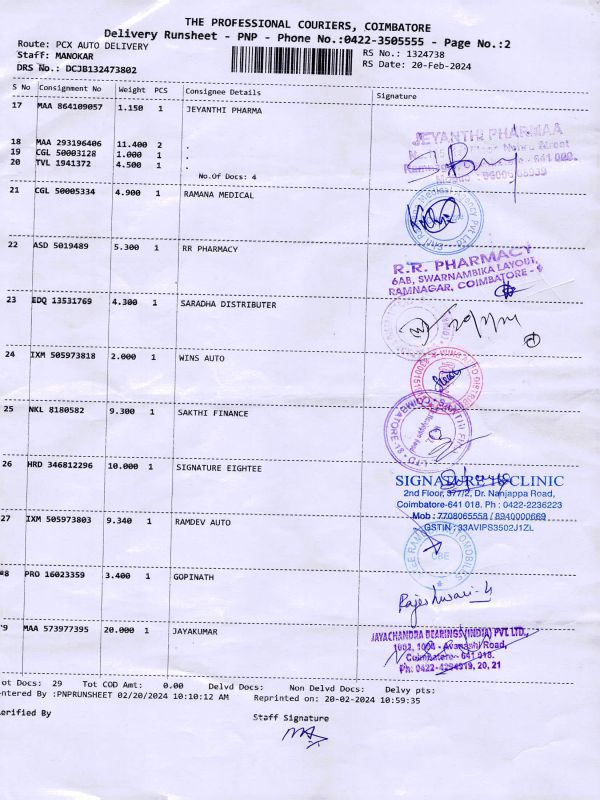 THE PROFESSIONAL COURIERS, COIMBATORE
Delivery Runsheet - PNP - Phone No.:0422-3505555 - Page No.:2
Route: PCX AUTO DELIVERY RS No.: 1324738
Staff: MANOKAR RS Date: 20-Feb-2024
DRS No.: DCJB132473802
S No Consignment No Weight PCS Consignee Details Signature
17 MAA 864109057 1.150 1 JEYANTHI PHARMA
JEYANTHI PHARMAA
18 MAA 293196406 11.400 2 .
19 CGL 50003128 1.000 1 .
20 TVL 1941372 4.500 1 .
No.Of Docs: 4
21 CGL 50005334 4.900 1 RAMANA MEDICAL
22 ASD 5019489 5.300 1 RR PHARMACY
R.R. PHARMACY
6AB, SWARNAMBIKA LAYOUT,
RAMNAGAR, COIMBATORE - 9
23 EDQ 13531769 4.300 1 SARADHA DISTRIBUTER
24 IXM 505973818 2.000 1 WINS AUTO
25 NKL 8180582 9.300 1 SAKTHI FINANCE
26 HRD 346812296 10.000 1 SIGNATURE EIGHTEE
SIGNATURE 18 CLINIC
2nd Floor, 377/2, Dr. Nanjappa Road,
Coimbatore-641 018. Ph : 0422-2236223
Mob : 7708065558 / 8940000669
GSTIN : 33AVIPS3502J1ZL
27 IXM 505973803 9.340 1 RAMDEV AUTO
8 PRO 16023359 3.400 1 GOPINATH
Rajeshwari
9 MAA 573977395 20.000 1 JAYAKUMAR
JAYACHANDRA BEARINGS (INDIA) PVT LTD.,
1002, 1004 - Avanashi Road,
Coimbatore - 641 018.
Ph: 0422-4294919, 20, 21
ot Docs: 29 Tot COD Amt: 0.00 Delvd Docs: Non Delvd Docs: Delvy pts:
ntered By :PNPRUNSHEET 02/20/2024 10:10:12 AM Reprinted on: 20-02-2024 10:59:35
erified By Staff Signature